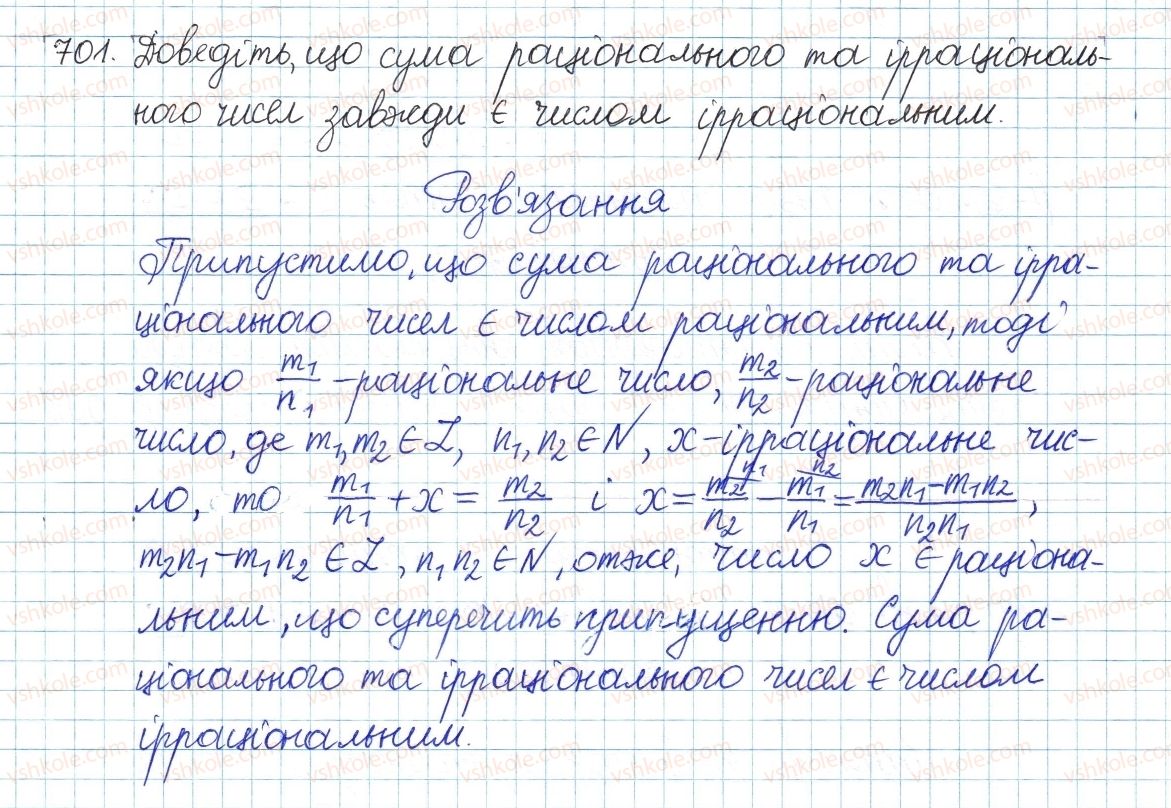 701. Доведіть, що сума раціонального та ірраціональ-
ного чисел завжди є числом ірраціональним.
Розв'язання
Припустимо, що сума раціонального та ірра-
ціонального чисел є числом раціональним, тоді
якщо m₁/n₁ - раціональне число, m₂/n₂ - раціональне
число, де m₁, m₂ ∈ Z, n₁, n₂ ∈ N, x - ірраціональне чис-
ло, то m₁/n₁ + x = m₂/n₂ і x = m₂/n₂ (n₁) - m₁/n₁ (n₂) = (m₂n₁ - m₁n₂)/(n₂n₁),
m₂n₁ - m₁n₂ ∈ Z, n₁n₂ ∈ N, отже, число x є раціона-
льним, що суперечить припущенню. Сума ра-
ціонального та ірраціонального чисел є числом
ірраціональним.
vshkole.com